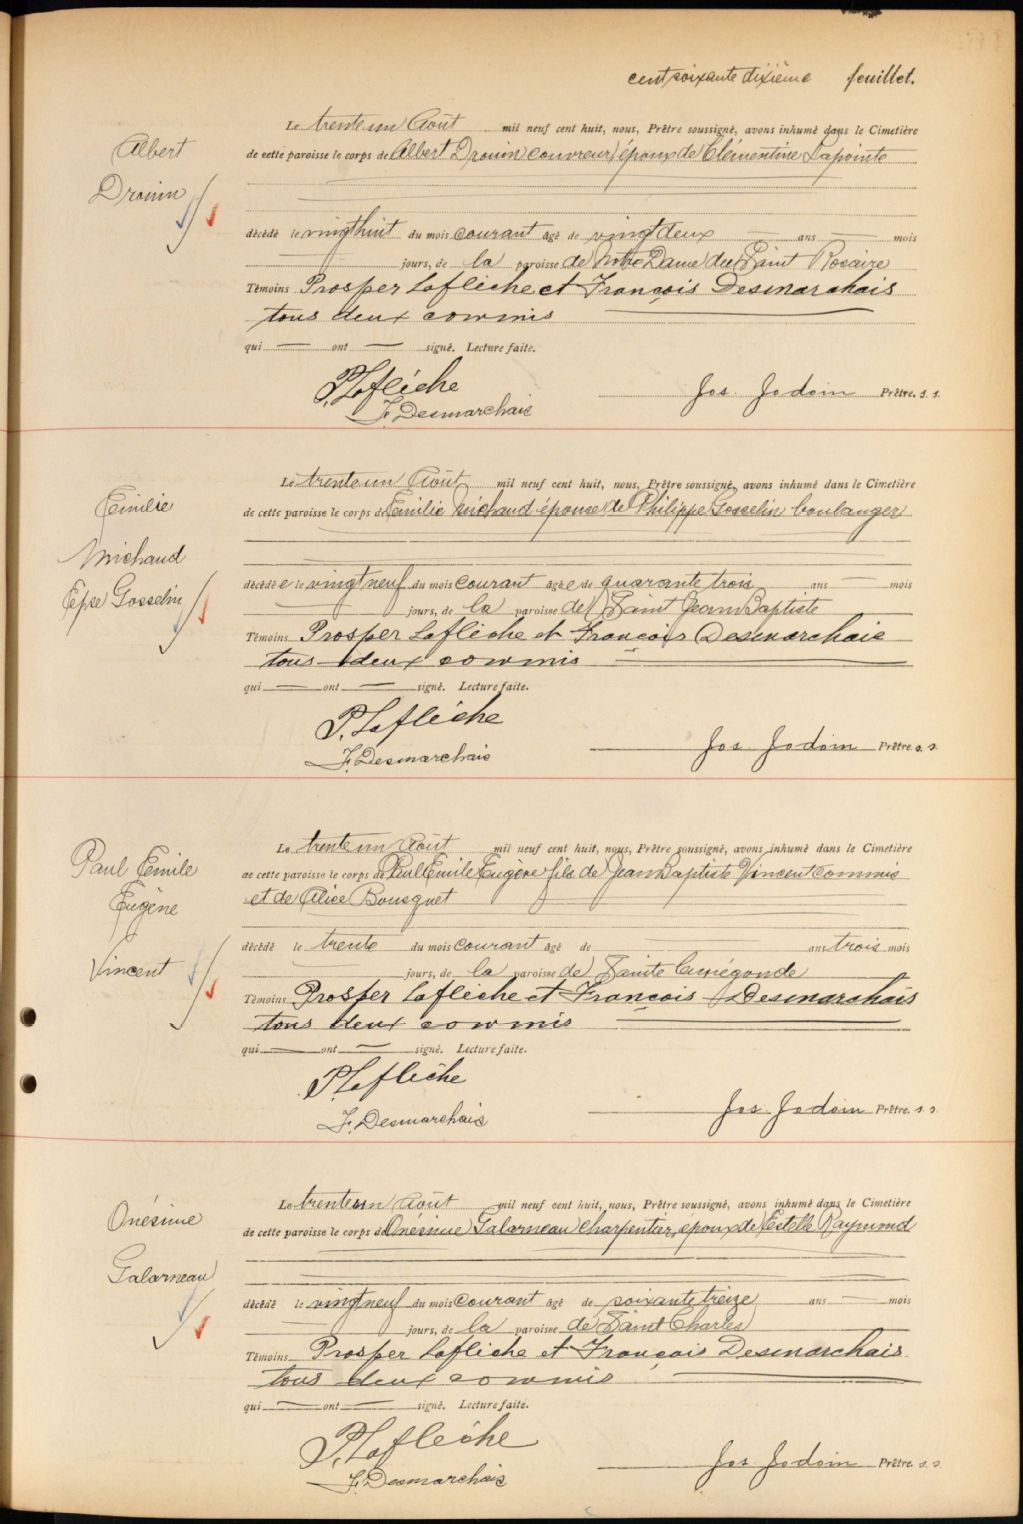 cent soixante dixième feuillet.
Albert
Drouin
Le trente un Août mil neuf cent huit, nous, Prêtre soussigné, avons inhumé dans le Cimetière
de cette paroisse le corps de Albert Drouin couvreur, époux de Clémentine Lapointe
décédé le vingt huit du mois courant âgé de vingt deux ans mois
jours, de la paroisse de Notre Dame du Saint Rosaire
Témoins Prosper Laflèche et François Desmarchais
tous deux commis
qui ont signé. Lecture faite.
P. Laflèche
F. Desmarchais
Jos. Jodoin Prêtre. s. s.
Emilie
Michaud
Epse Gosselin
Le trente un Août mil neuf cent huit, nous, Prêtre soussigné, avons inhumé dans le Cimetière
de cette paroisse le corps de Emilie Michaud épouse de Philippe Gosselin boulanger
décédée le vingt neuf du mois courant âgée de quarante trois ans mois
jours, de la paroisse de Saint Jean Baptiste
Témoins Prosper Laflèche et François Desmarchais
tous deux commis
qui ont signé. Lecture faite.
P. Laflèche
F. Desmarchais
Jos Jodoin Prêtre s. s.
Paul Emile
Eugène
Vincent
Le trente un Août mil neuf cent huit, nous, Prêtre soussigné, avons inhumé dans le Cimetière
de cette paroisse le corps de Paul Emile Eugène fils de Jean Baptiste Vincent commis
et de Alice Bousquet
décédé le trente du mois courant âgé de ans trois mois
jours, de la paroisse de Sainte Cunégonde
Témoins Prosper Laflèche et François Desmarchais
tous deux commis
qui ont signé. Lecture faite.
P. Laflèche
F. Desmarchais
Jos. Jodoin Prêtre. s. s.
Onésime
Galarneau
Le trente un Août mil neuf cent huit, nous, Prêtre soussigné, avons inhumé dans le Cimetière
de cette paroisse le corps de Onésime Galarneau charpentier, époux de Estelle Raymond
décédé le vingt neuf du mois courant âgé de soixante treize ans mois
jours, de la paroisse de Saint Charles
Témoins Prosper Laflèche et François Desmarchais
tous deux commis
qui ont signé. Lecture faite.
P. Laflèche
F. Desmarchais
Jos Jodoin Prêtre. s. s.